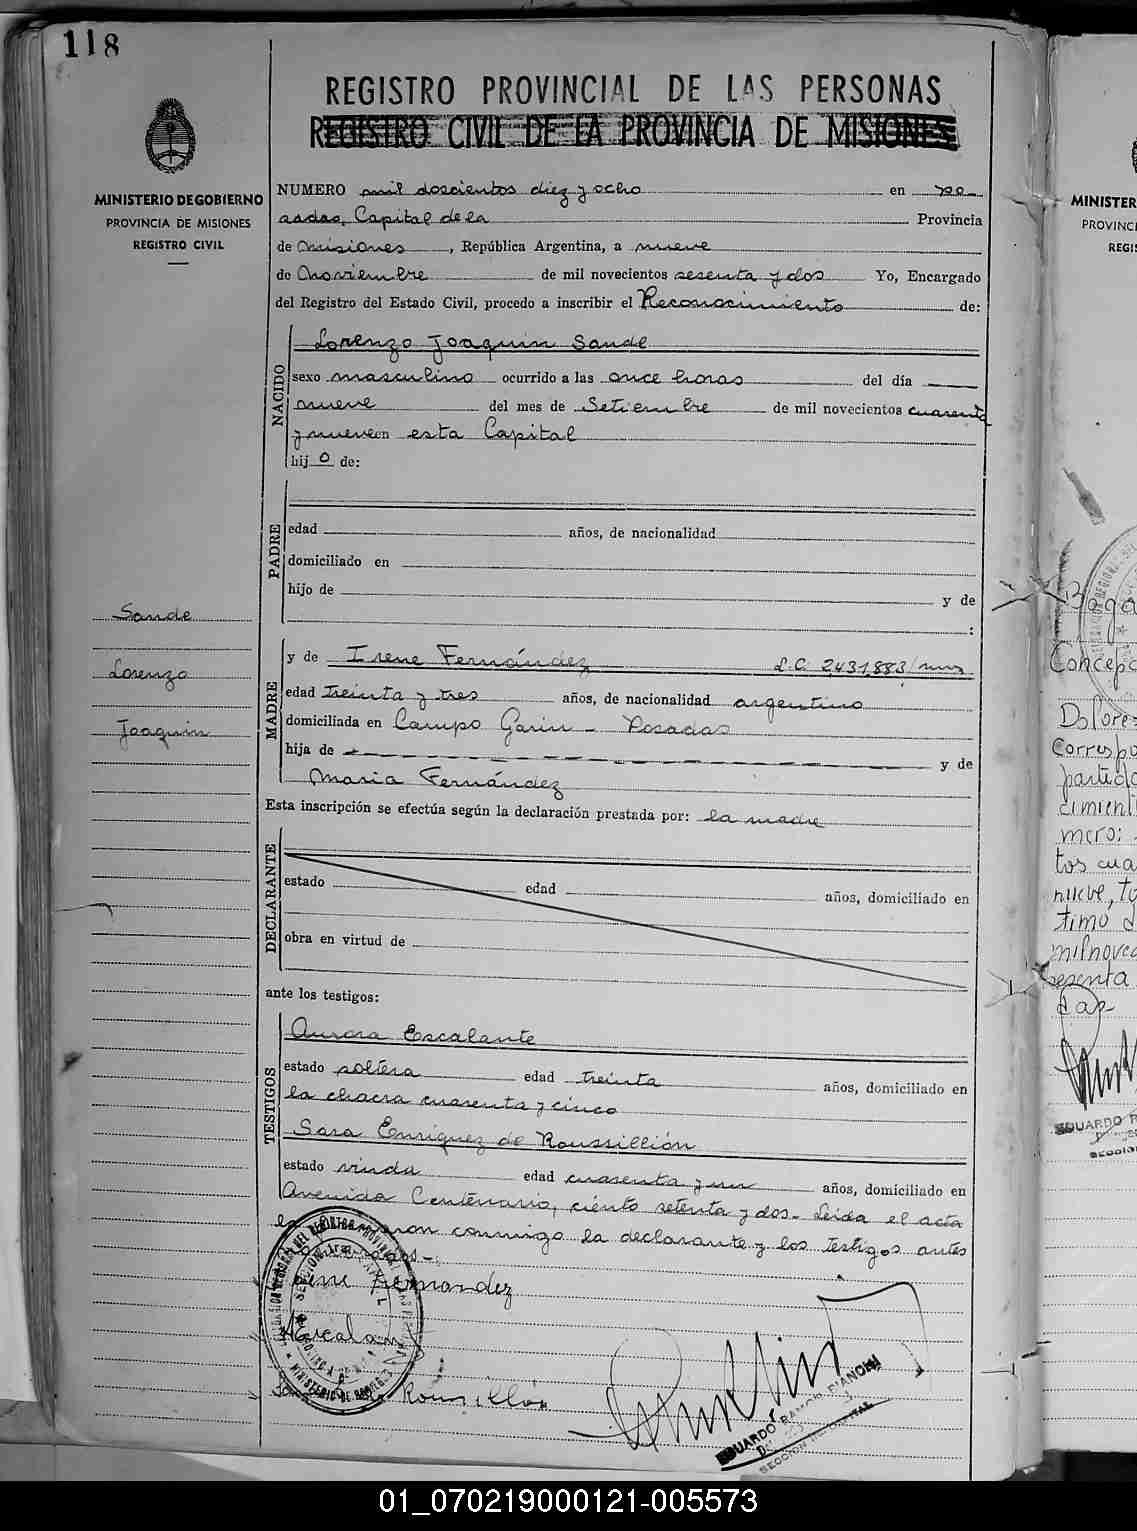 118
REGISTRO PROVINCIAL DE LAS PERSONAS
REGISTRO CIVIL DE LA PROVINCIA DE MISIONES
MINISTERIO DE GOBIERNO
PROVINCIA DE MISIONES
REGISTRO CIVIL
NUMERO mil doscientos diez y ocho en Po-
sadas, Capital de la Provincia
de Misiones, República Argentina, a nueve
de Noviembre de mil novecientos sesenta y dos Yo, Encargado
del Registro del Estado Civil, procedo a inscribir el Reconocimiento de:
NACIDO
Lorenzo Joaquin Sande
sexo masculino ocurrido a las once horas del día
nueve del mes de Setiembre de mil novecientos cuarenta
y nueve en esta Capital
hijo de:
PADRE
edad años, de nacionalidad
domiciliado en
hijo de y de
:
Sande
Lorenzo
Joaquin
MADRE
y de Irene Fernández L.C. 2431,883/
edad treinta y tres años, de nacionalidad argentino
domiciliada en Campo Garin - Posadas
hija de y de
Maria Fernández
Esta inscripción se efectúa según la declaración prestada por: la madre
DECLARANTE
estado edad años, domiciliado en
obra en virtud de
ante los testigos:
TESTIGOS
Aurora Escalante
estado soltera edad treinta años, domiciliado en
la chacra cuarenta y cinco
Sara Enriquez de Roussillión
estado viuda edad cuarenta y un años, domiciliado en
Avenida Centenario, ciento setenta y dos - Leida el acta
la conmigo la declarante y los testigos antes
Fernandez
AEscalan
Rousillón
EDUARDO RAMON PIANCHI
MINISTER
PROVINCI
REGIS
Concepc
Dolores
Corrrespo
partida
cimient
mero:
tos cua
nueve, to
timo d
milnovec
sesenta
dos-
EDUARDO R
SECCION
01_070219000121-005573